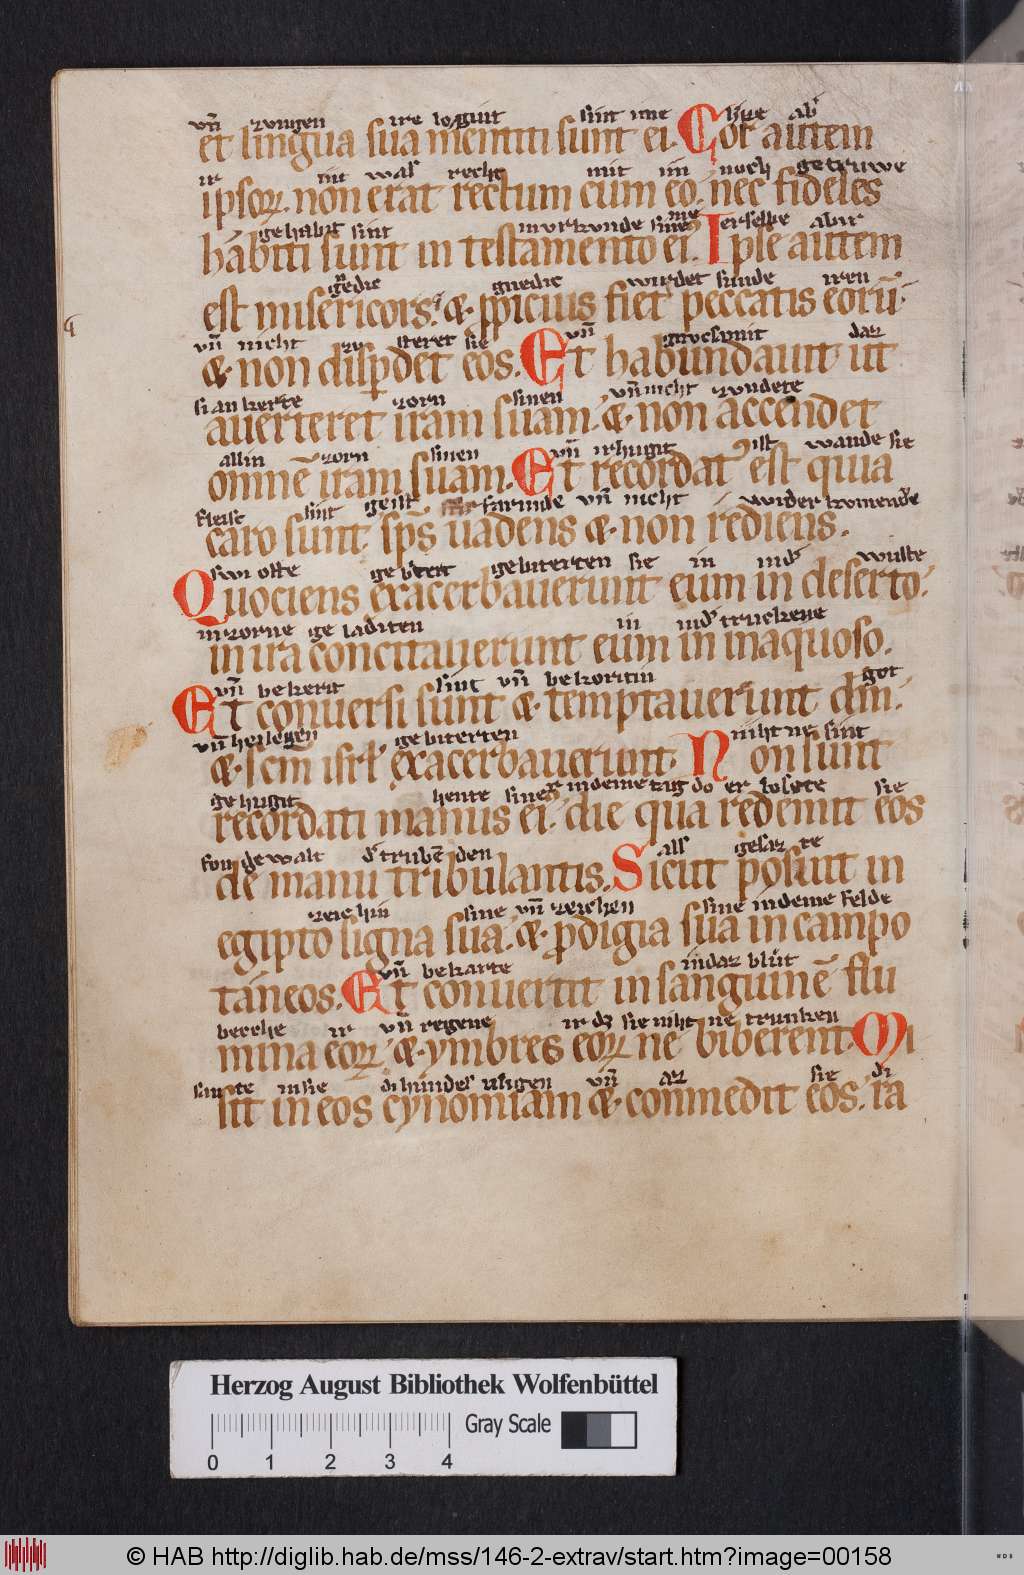 vn̄ zungen ire loguit sint ime hʒze ab᷑
et lingua sua mentiti sunt ei. Cor autem
ir nit was recht mit im noch getruwe
ipsoꝝ. non erat rectum cum eo. nec fideles
gehabit sint in vrkunde sineme er selbe abir
habiti sunt in testamento ei᷒. Ipse autem
gnedic gnedic wirdet sunde iren
est misericors. ⁊ ꝓpicius fiet peccatis eorū.
vn̄ nicht zu steret sie vn̄ daz
⁊ non disꝑdet eos. Et habundauit ut
si an kerte zorn sinen vn̄ nicht zundete
auerteret iram suam. ⁊ non accendet
allin zorn sinen vn̄ irhugit ist wande sie
omnē iram suam. Et recordat᷒ est quia
fleisc sint geist farinde vn̄ nicht wider komende
caro sunt. sp̄s uadens ⁊ non rediens.
swi ofte gebiterten sie in in d᷑ wuste
Quociens exacerbauerunt eum in deserto.
in zorne ge laditen in in d᷑ truckene
in ira concitauerunt eum in inaquoso.
vn̄ bekerit sint vn̄ bekoritin got
Et conuersi sunt ⁊ temptauerunt dm̄.
vn̄ heilegen gebiterten niht ne sint
⁊ scm̄ isrl̄ exacerbauerunt. Non sunt
gehugit hente sines in deme tag do er losete sie
recordati manus ei᷒. die qua redemit eos
fon gewalt d᷑ trubēden als gesazte
de manu tribulantis. Sicut posuit in
zeichin sine vn̄ zeichen sine in deme felde
egipto signa sua. ⁊ ꝓdigia sua in campo
vn̄ bekarte in daz blut
taneos. Et conuertit in sanguinē flu
beche ir vn̄ regene ir dz sie niht ne trunken
mina eoꝝ. ⁊ ymbres eoꝝ ne biberent. Mi
sante in sie di hundes vligen vn̄ az sie di
sit in eos cynomiam ⁊ commedit eos. ra
Herzog August Bibliothek Wolfenbüttel
Gray Scale
0 1 2 3 4
© HAB http://diglib.hab.de/mss/146-2-extrav/start.htm?image=00158